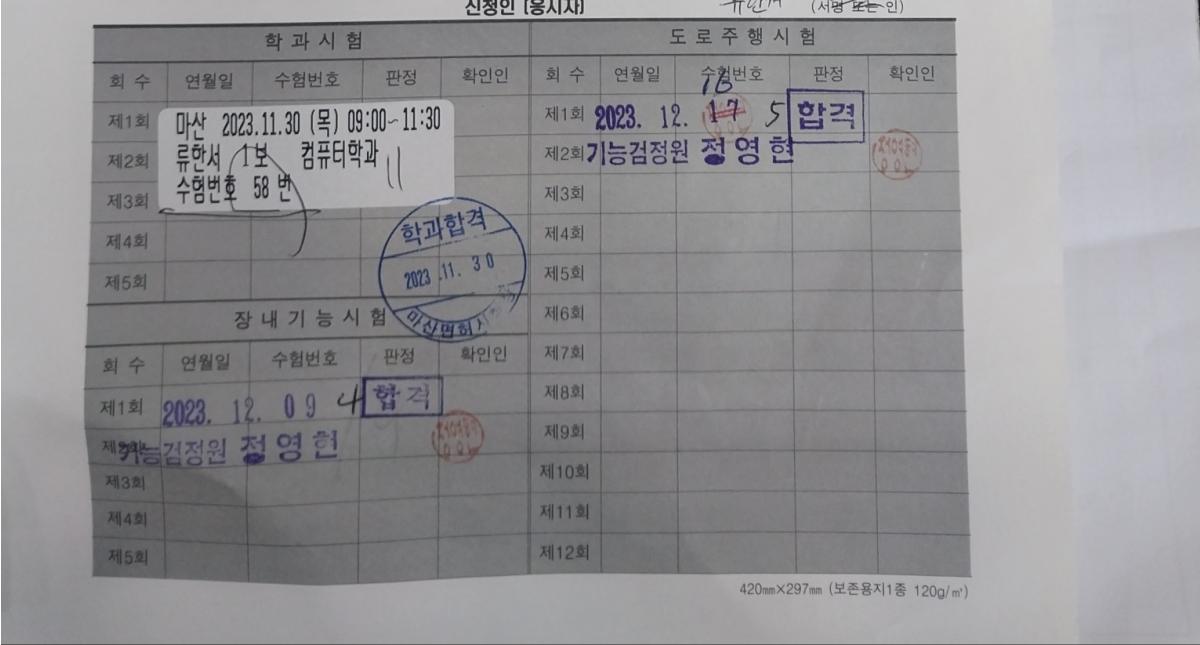 신청인 [응시자]
(서명 또는 인)
학과시험
회 수 연월일 수험번호 판정 확인인
제1회
제2회
제3회
제4회
제5회
마산 2023.11.30 (목) 09:00~11:30
류한서 1보 컴퓨터학과
수험번호 58 번
11
학과합격
2023.11.30
마산면허시
장내기능시험
회 수 연월일 수험번호 판정 확인인
제1회 2023. 12. 09 4 합격
기능검정원 정영현
제3회
제4회
제5회
도로주행시험
회 수 연월일 수험번호 판정 확인인
16
제1회 2023. 12. 17 5 합격
제2회 기능검정원 정영현
제3회
제4회
제5회
제6회
제7회
제8회
제9회
제10회
제11회
제12회
420㎜×297㎜ (보존용지1종 120g/㎡)